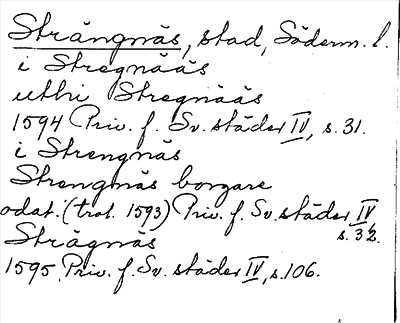 Strängnäs, stad, Söderm. l.
i Stregnääs
uthi Stregnääs
1594 Priv. f. Sv. städer IV, s. 31.
i Strengnäs
Strengnäs borgare
odat. (trol. 1593) Priv. f. Sv. städer IV
s. 32.
Strägnäs
1595 Priv. f. Sv. städer IV, s. 106.